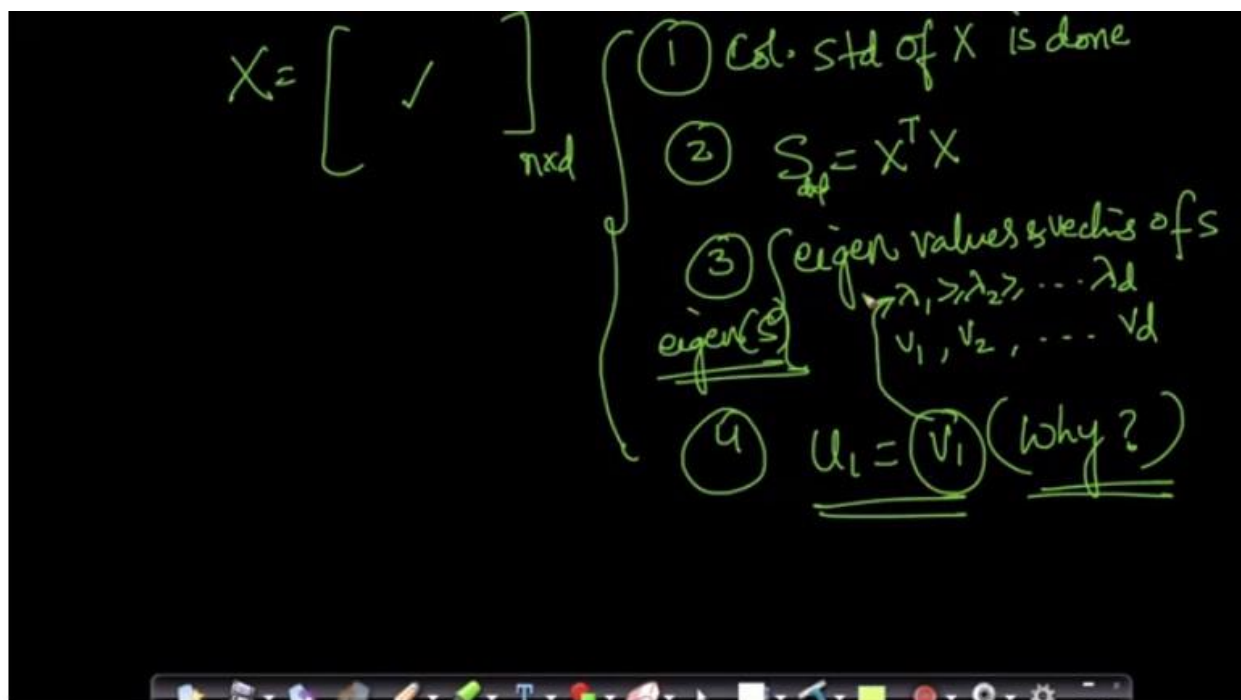 X = [ ✓ ] nxd
① Col. std of X is done
② S dxd = XᵀX
③ eigen values & vectors of S
λ₁ ≥ λ₂ ≥ ... λd
eigen(S)
v₁, v₂, ... vd
④ U₁ = V₁ (Why?)
T